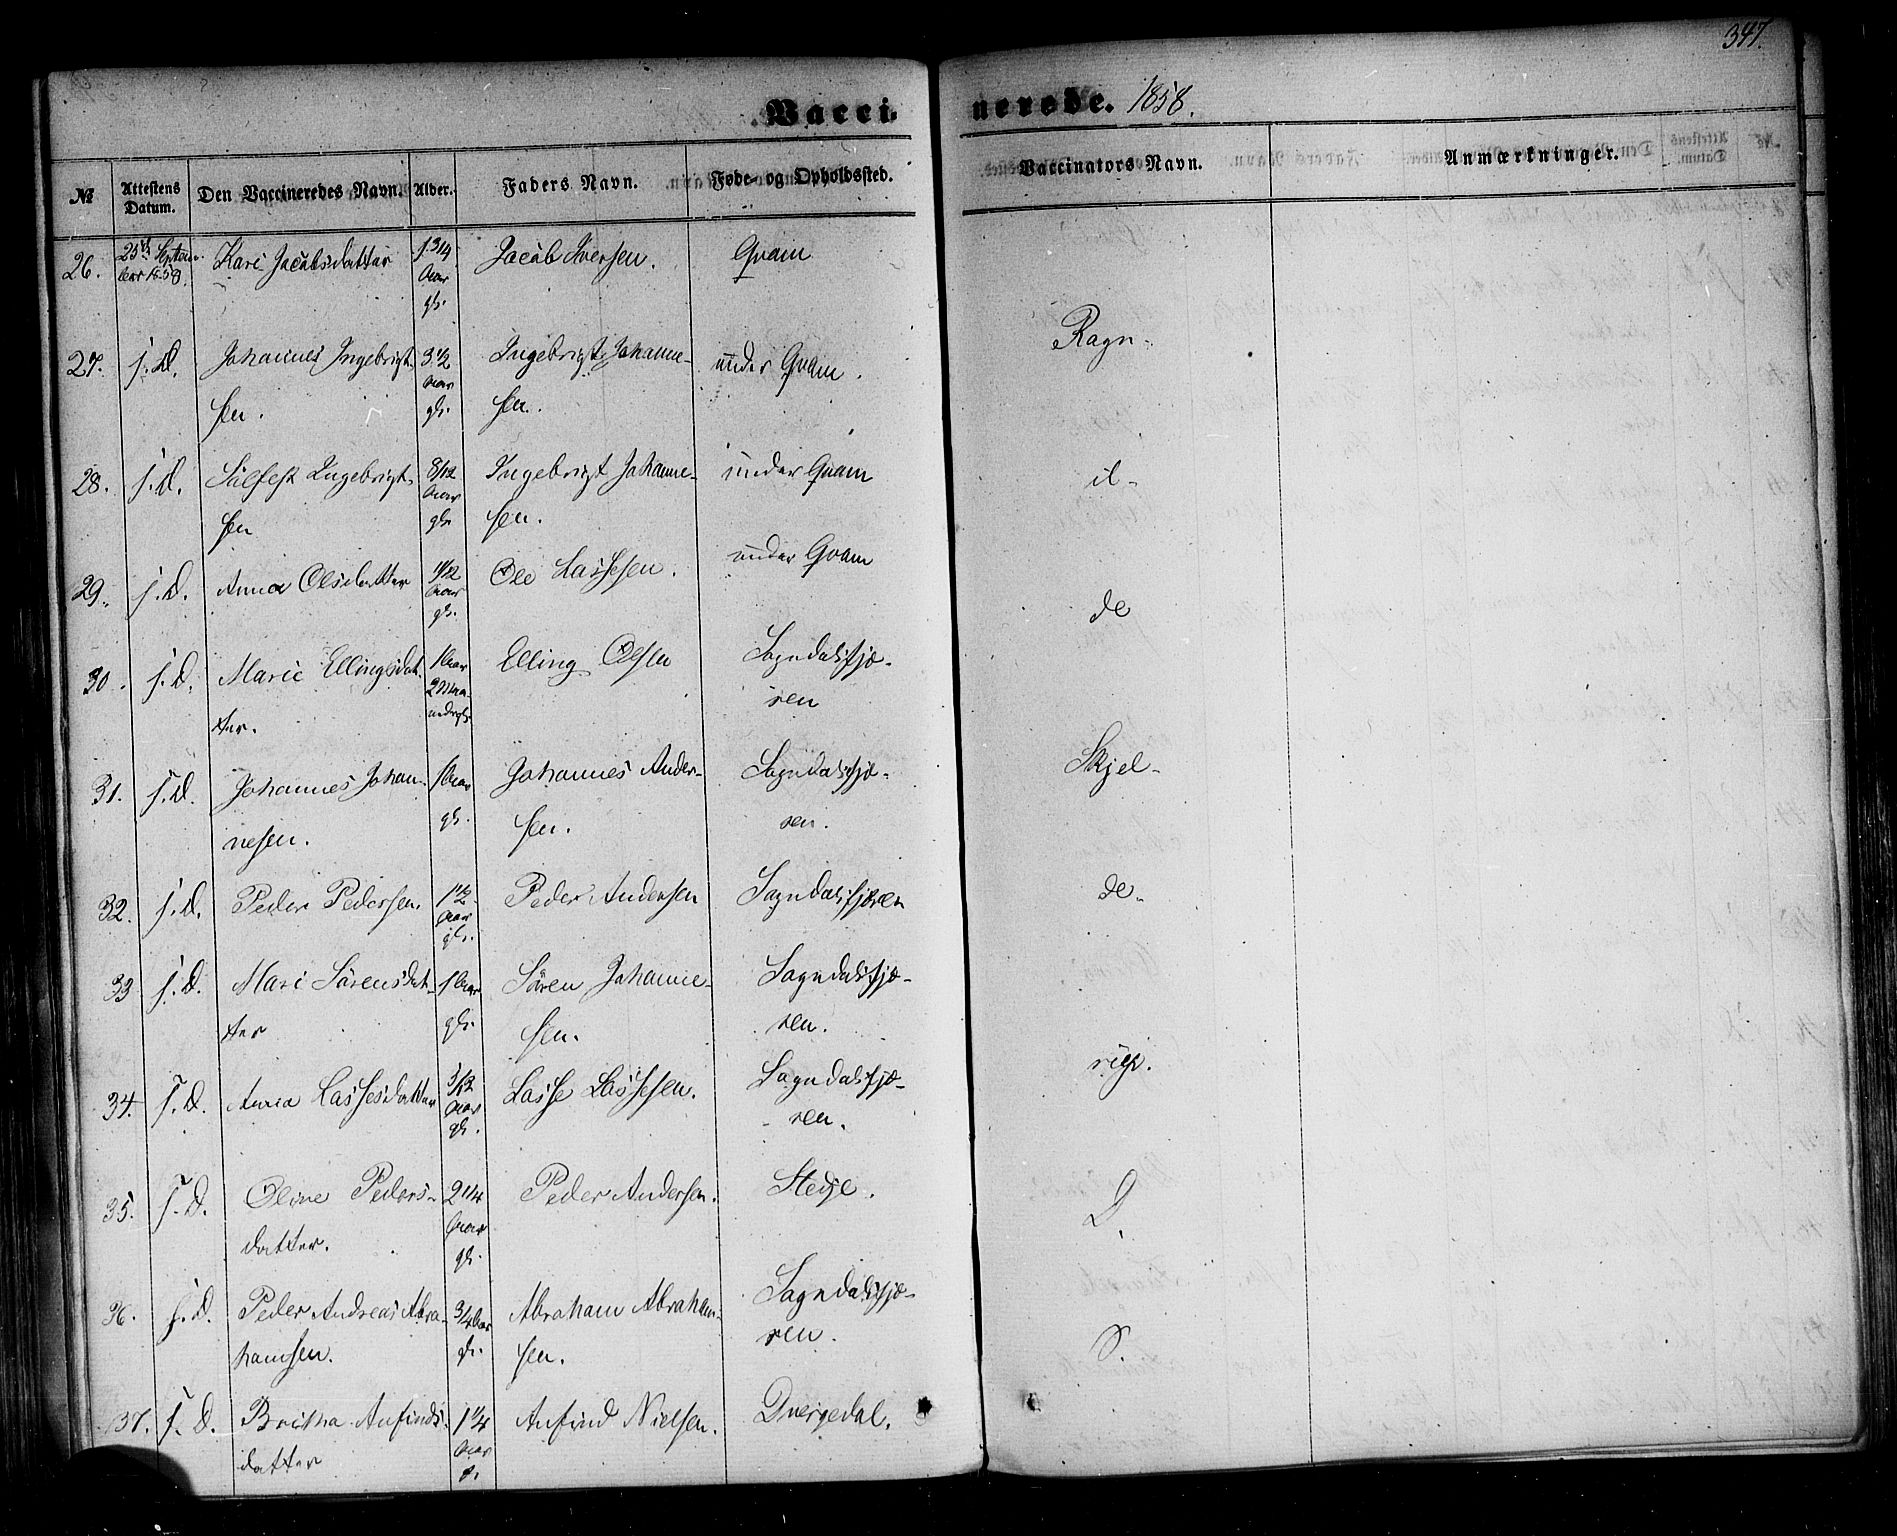 347.
Vaccinerede. 1858.
№ | Attestens Datum. | Den Vaccineredes Navn. | Alder. | Faders Navn. | Føde- og Opholdssted. | Vaccinators Navn. | Anmærkninger.
26. | 25de Septem-
ber 1858. | Kari Jacobsdatter | 1 3/4
Aar
gl. | Jacob Iversen. | Qvam
27. | s. D. | Johannes Ingebrigt-
sen. | 3 1/2
Aar
gl. | Ingebrigt Johanne-
sen. | under Qvam. | Ragn-
28. | s. D. | Sølfest Ingebrigt-
sen | 8/12
Aar
gl. | Ingebrigt Johanne-
sen. | under Qvam | il-
29. | s. D. | Anna Olsdatter | 11/12
Aar
gl. | Ole Lassesen. | under Qvam | de
30. | s. D. | Marie Ellingsdat-
ter. | 1 Aar
2 Maa-
nedergl. | Elling Olsen | Sogndalsfjæ-
ren
31. | s. D. | Johannes Johan-
nesen. | 1 Aar
gl. | Johannes Ander-
sen. | Sogndalsfjæ-
ren. | Skjel-
32. | s. D. | Peder Pedersen. | 1 1/2
Aar
gl. | Peder Andersen | Sogndalsfjæren | de-
33 | s. D. | Mari Sørensdat-
ter | 1 Aar
gl. | Søren Johanne-
sen. | Sogndalsfjæ-
ren.
34. | s. D. | Anna Lassesdatter | 5/12
Aar
gl. | Lasse Lassesen. | Sogndalsfjæ-
ren. | rup.
35. | s. D. | Oline Peders-
datter. | 2 1/4
Aar
gl. | Peder Andersen. | Stedje. | D.
36. | s. D. | Peder Andreas Abra-
hamsen. | 3/4 Aar
gl. | Abraham Abraham-
sen. | Sogndalsfjæ-
ren. | S.
37. | s. D. | Britha Anfinds-
datter | 1 1/4
Aar
g. | Anfind Nielsen. | Dvergedal.